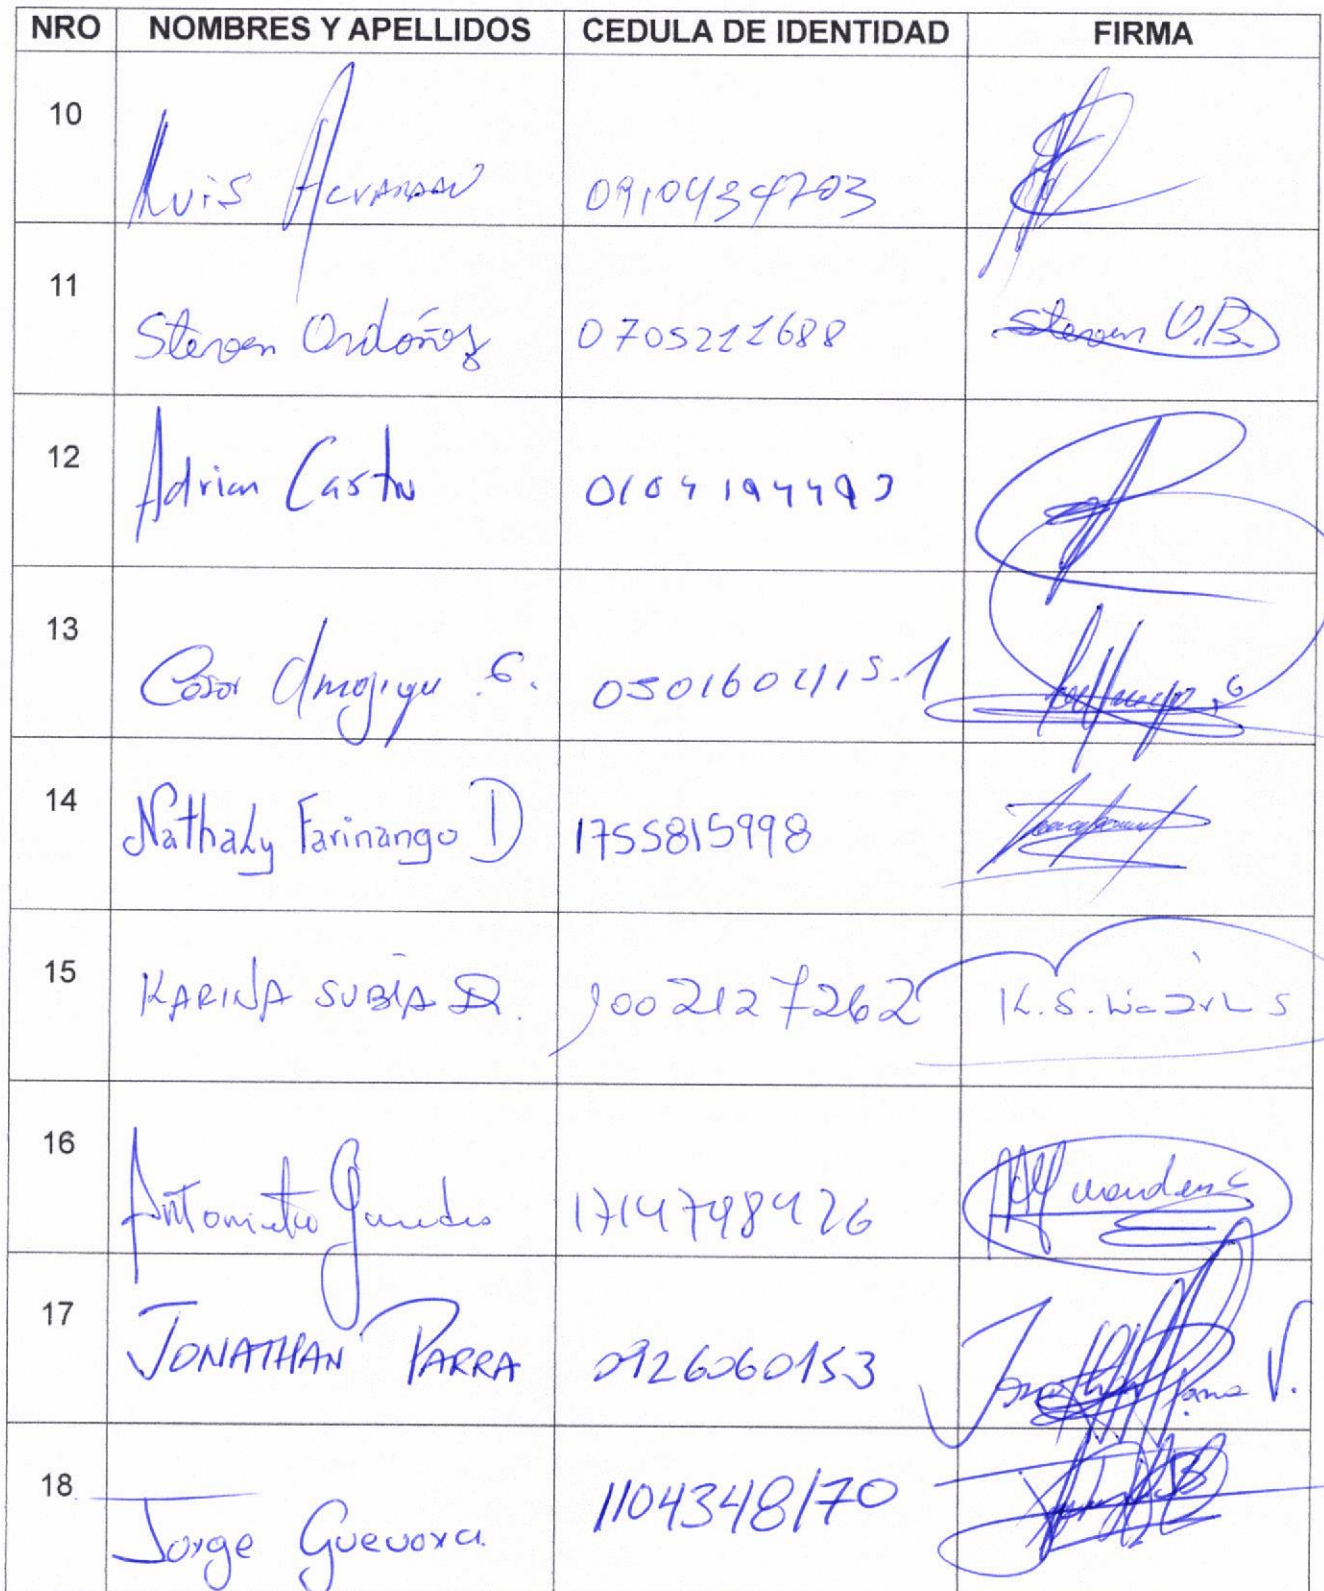 NRO NOMBRES Y APELLIDOS CEDULA DE IDENTIDAD FIRMA
10 Luis Alvarado
11 Steven Ordóñez 0705221688 Steven O.B.
12 Adrian Castro 0104194493
13 G. 0501604115-1
14 Nathaly Farinango D 1755815998
15 KARINA SUBÍA D. 1002127262
16 Antonieta 1714798426
17 JONATHAN PARRA 0926060153 Jonathan Parra V.
18 Jorge Guevara 1104348170